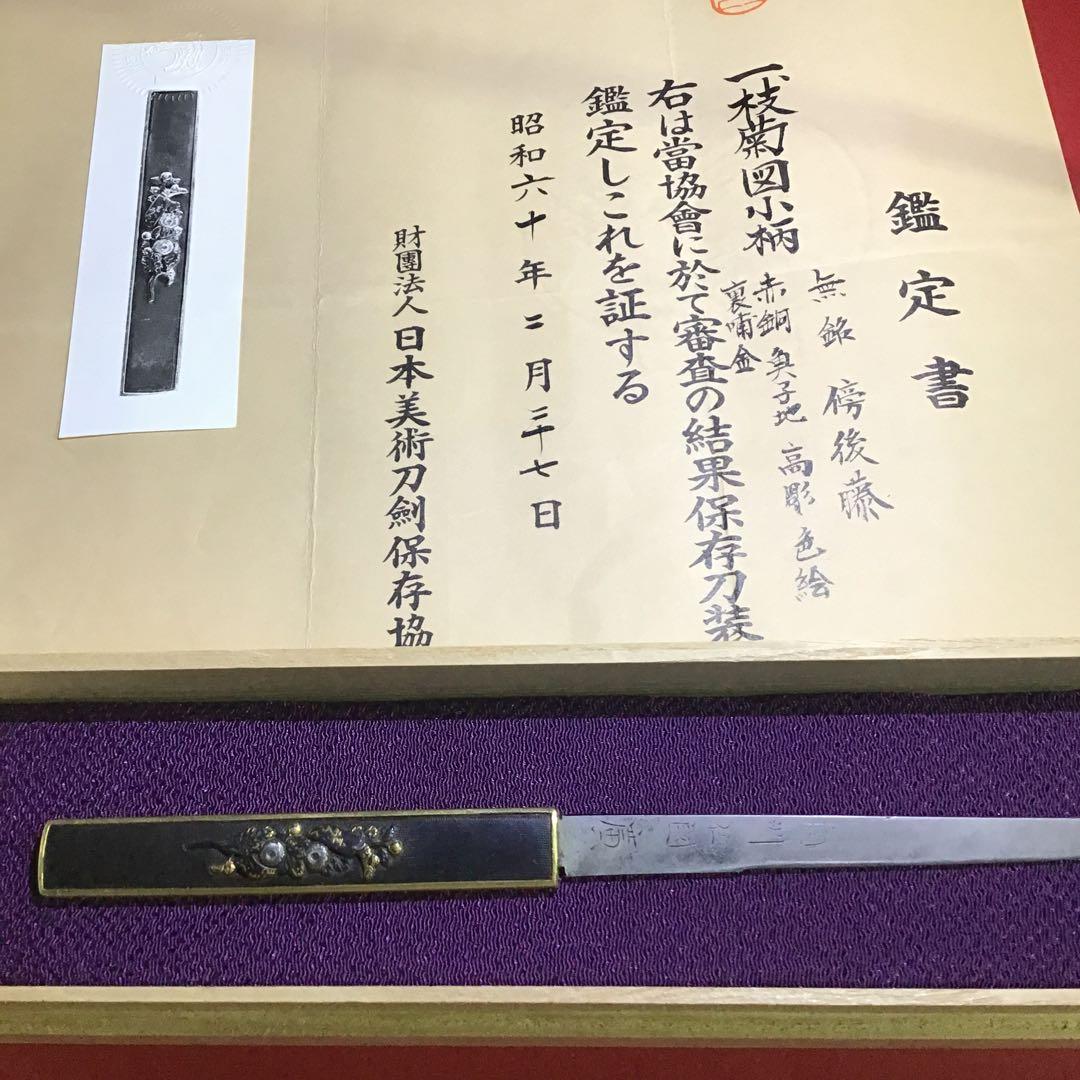 鑑定書
一、枝菊図小柄
無銘 傍後藤
赤銅魚子地高彫色絵
裏哺金
右は當協會に於て審査の結果保存刀装
鑑定しこれを証する
昭和六十年二月二十七日
財團法人日本美術刀劍保存協
國廣